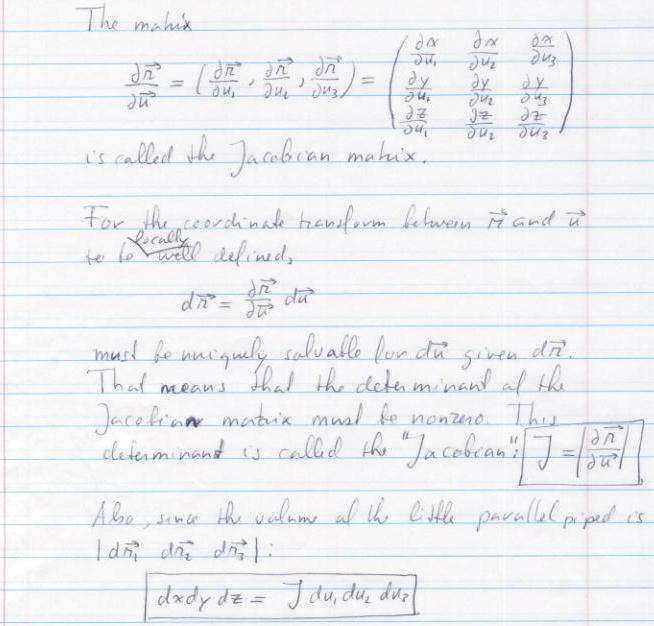 The matrix
∂r⃗/∂u⃗ = (∂r⃗/∂u₁, ∂r⃗/∂u₂, ∂r⃗/∂u₃) = ( ∂x/∂u₁ ∂x/∂u₂ ∂x/∂u₃
∂y/∂u₁ ∂y/∂u₂ ∂y/∂u₃
∂z/∂u₁ ∂z/∂u₂ ∂z/∂u₃ )
is called the Jacobian matrix.
For the coordinate transform between r⃗ and u⃗
to be locally well defined,
dr⃗ = ∂r⃗/∂u⃗ du⃗
must be uniquely solvable for du⃗ given dr⃗.
That means that the determinant of the
Jacobian matrix must be nonzero. This
determinant is called the "Jacobean": J = |∂r⃗/∂u⃗|
Also, since the volume of the little parallelpiped is
|dr⃗₁ dr⃗₂ dr⃗₃|:
dxdy dz = J du₁ du₂ du₃